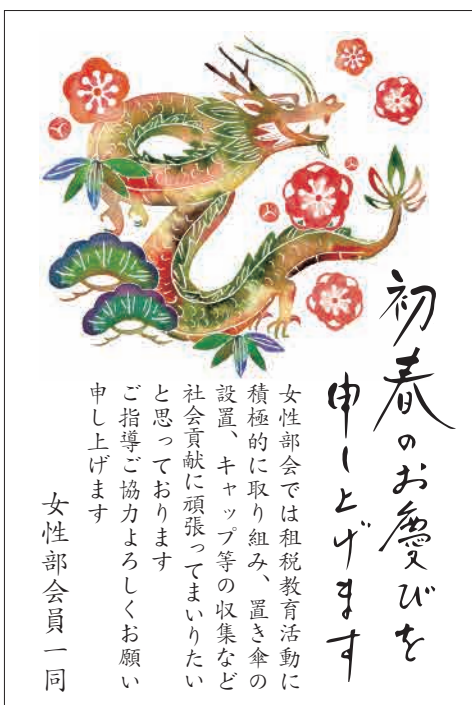 初春のお慶びを
申し上げます
女性部会では租税教育活動に
積極的に取り組み、置き傘の
設置、キャップ等の収集など
社会貢献に頑張ってまいりたい
と思っております
ご指導ご協力よろしくお願い
申し上げます
女性部会員一同